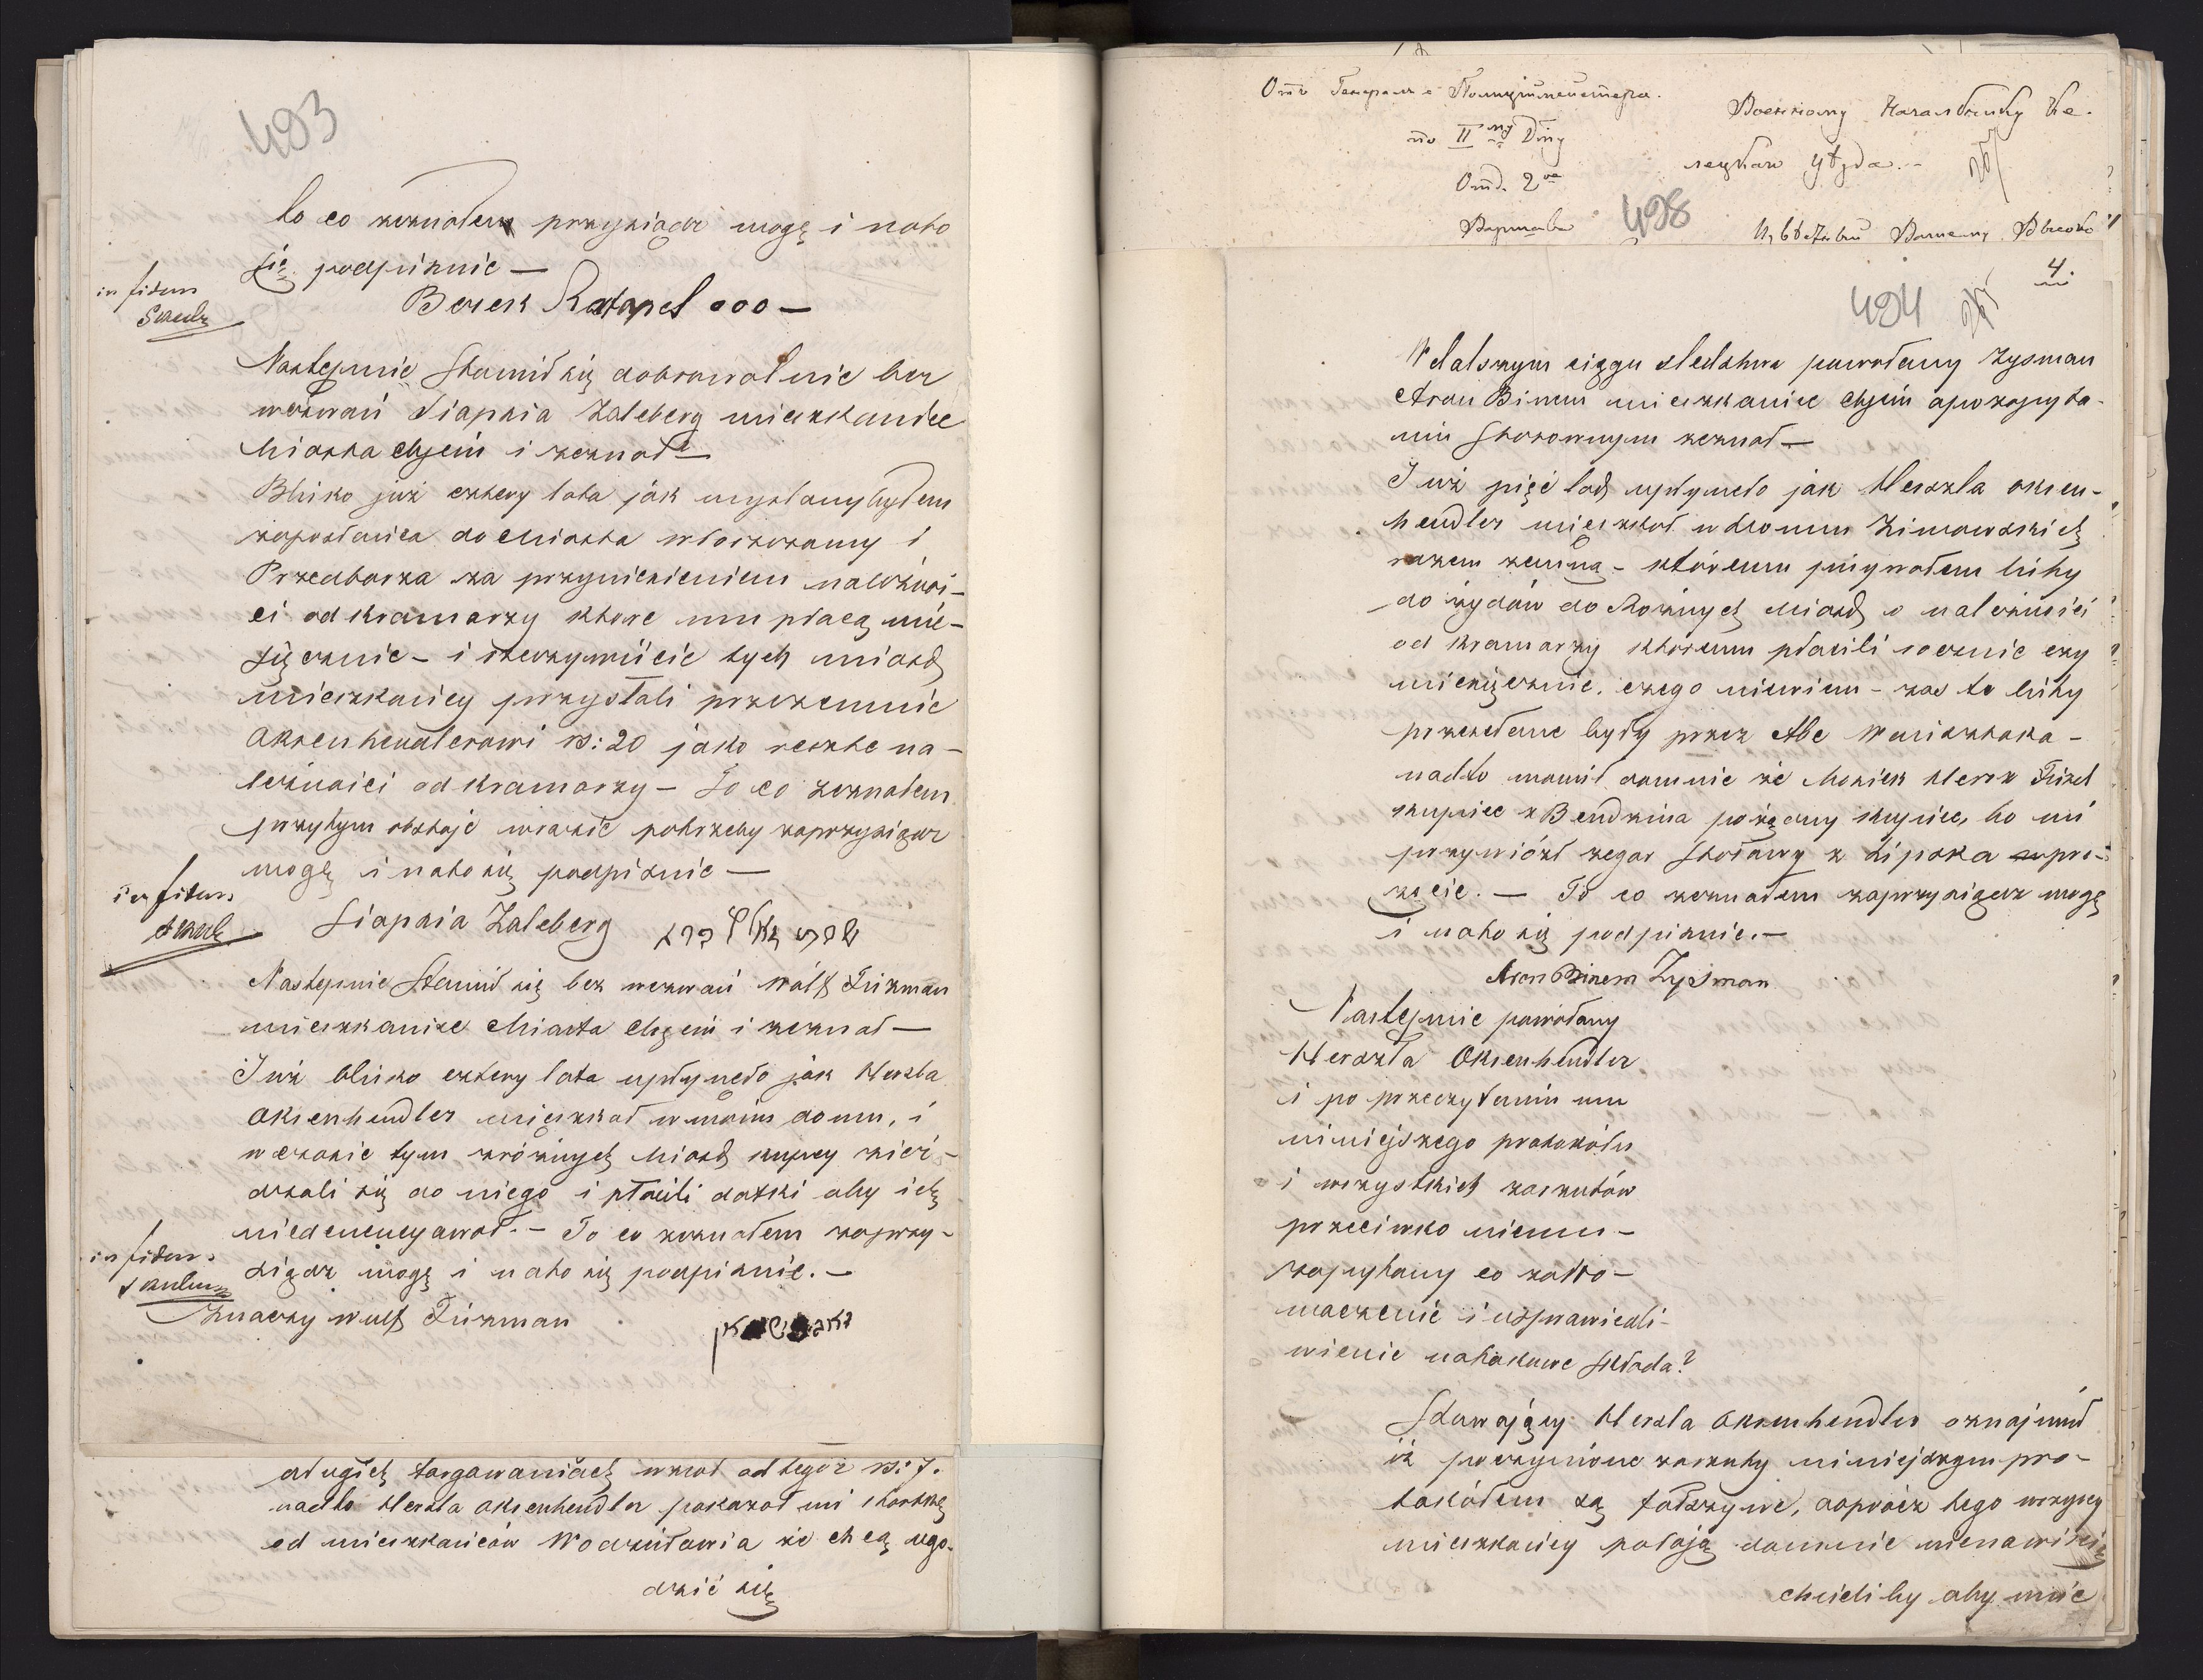 493
to co zeznałem przysiądz mogę i nato
się podpisuie —
in fidem
Berek Ratapel ooo —
Następnie Stawił się dobrowolnie bez
wezwań Siapsia Zaleberg mieszkaniec
Miasta Chęcin i zeznał —
Blisko już cztery lata jak wysłany byłem
zaposłańca do Miasta Włoszczowy i
Przedborza za przyniesieniem należnoś-
ci od Kramarzy które mu płacą mie-
sięcznie — i rzeczywiście tych miast
mieszkańcy przysłali przezemnie
Oksenhendlerowi rs: 20 jako resztę na-
leżności od Kramarzy — To co zeznałem
przytym obstaję wrazie potrzeby zaprzysiądz
mogę i nato się podpisuie —
in fidem
Siapsia Zaleberg
Następnie Stawił się bez wezwań Wolf Fiszman
mieszkaniec Miasta Chęcin i zeznał —
Już blisko cztery lata upłyneło jak Herszla
Oksenhendler mieszkał w moim domu, i
w czasie tym zróżnych Miast kupcy zież-
dzali się do niego i płacili datki aby ich
niedenuncyował. — To co zeznałem zaprzy-
siądz mogę i nato się podpisuie. —
in fidem
Znaczy Wulf Fiszman
długich targowaniach wział od tegoż rs: 7.
nadto Herszla Oksenhendler pokazał mi kartkę
od mieszkańców Wodzisławia że chcą ugo-
dzić się
Отъ Генералъ Полиціймейстера.
по II му Окру
Отд. 2ое
Варшава
498
Военному Начальнику Ке-
лецкаго уѣзда. —
4.
494
W dalszym ciągu śledztwa powołany Zysman
Aron Binem mieszkaniec Chęcin apozapyta-
niu Stosownym zeznał —
Już pięć lat upłyneło jak Herszla Oksen-
hendler mieszkał w domu Zimowskich
razem zemną — któremu pisywałem listy
do żydów do Rożnych Miast o należności
od Kramarzy któremu płacili rocznie czy
miesięcznie, czego niewiem — zaś te listy
przesłane były przez Abe
nadto mowił domnie że Mosiek Hersz Fiszel
kupiec z Bendzina porządny kupiec, bo mi
przywiózł zegar Stołowy z Lipska wpre-
zęcie. — To co zeznałem zaprzysiądz mogę
i nato się podpisuie. —
Aron Binem Zysman
Następnie powołany
Herszla Oksenhendler
i po przeczytaniu mu
niniejszego protokółu
i wszystkich zarzutów
przeciwko niemu —
zapytany co zatło-
maczenie i usprawiedli-
wienie natakowe składa?
Stawający Herszla Oksenhendler oznajmił
iż poczynione zarzuty niniejszym pro-
tokółem są fałszywe, doprócz tego wszyscy
mieszkańcy pałają domnie nienawiścią
chcieliby aby mnie